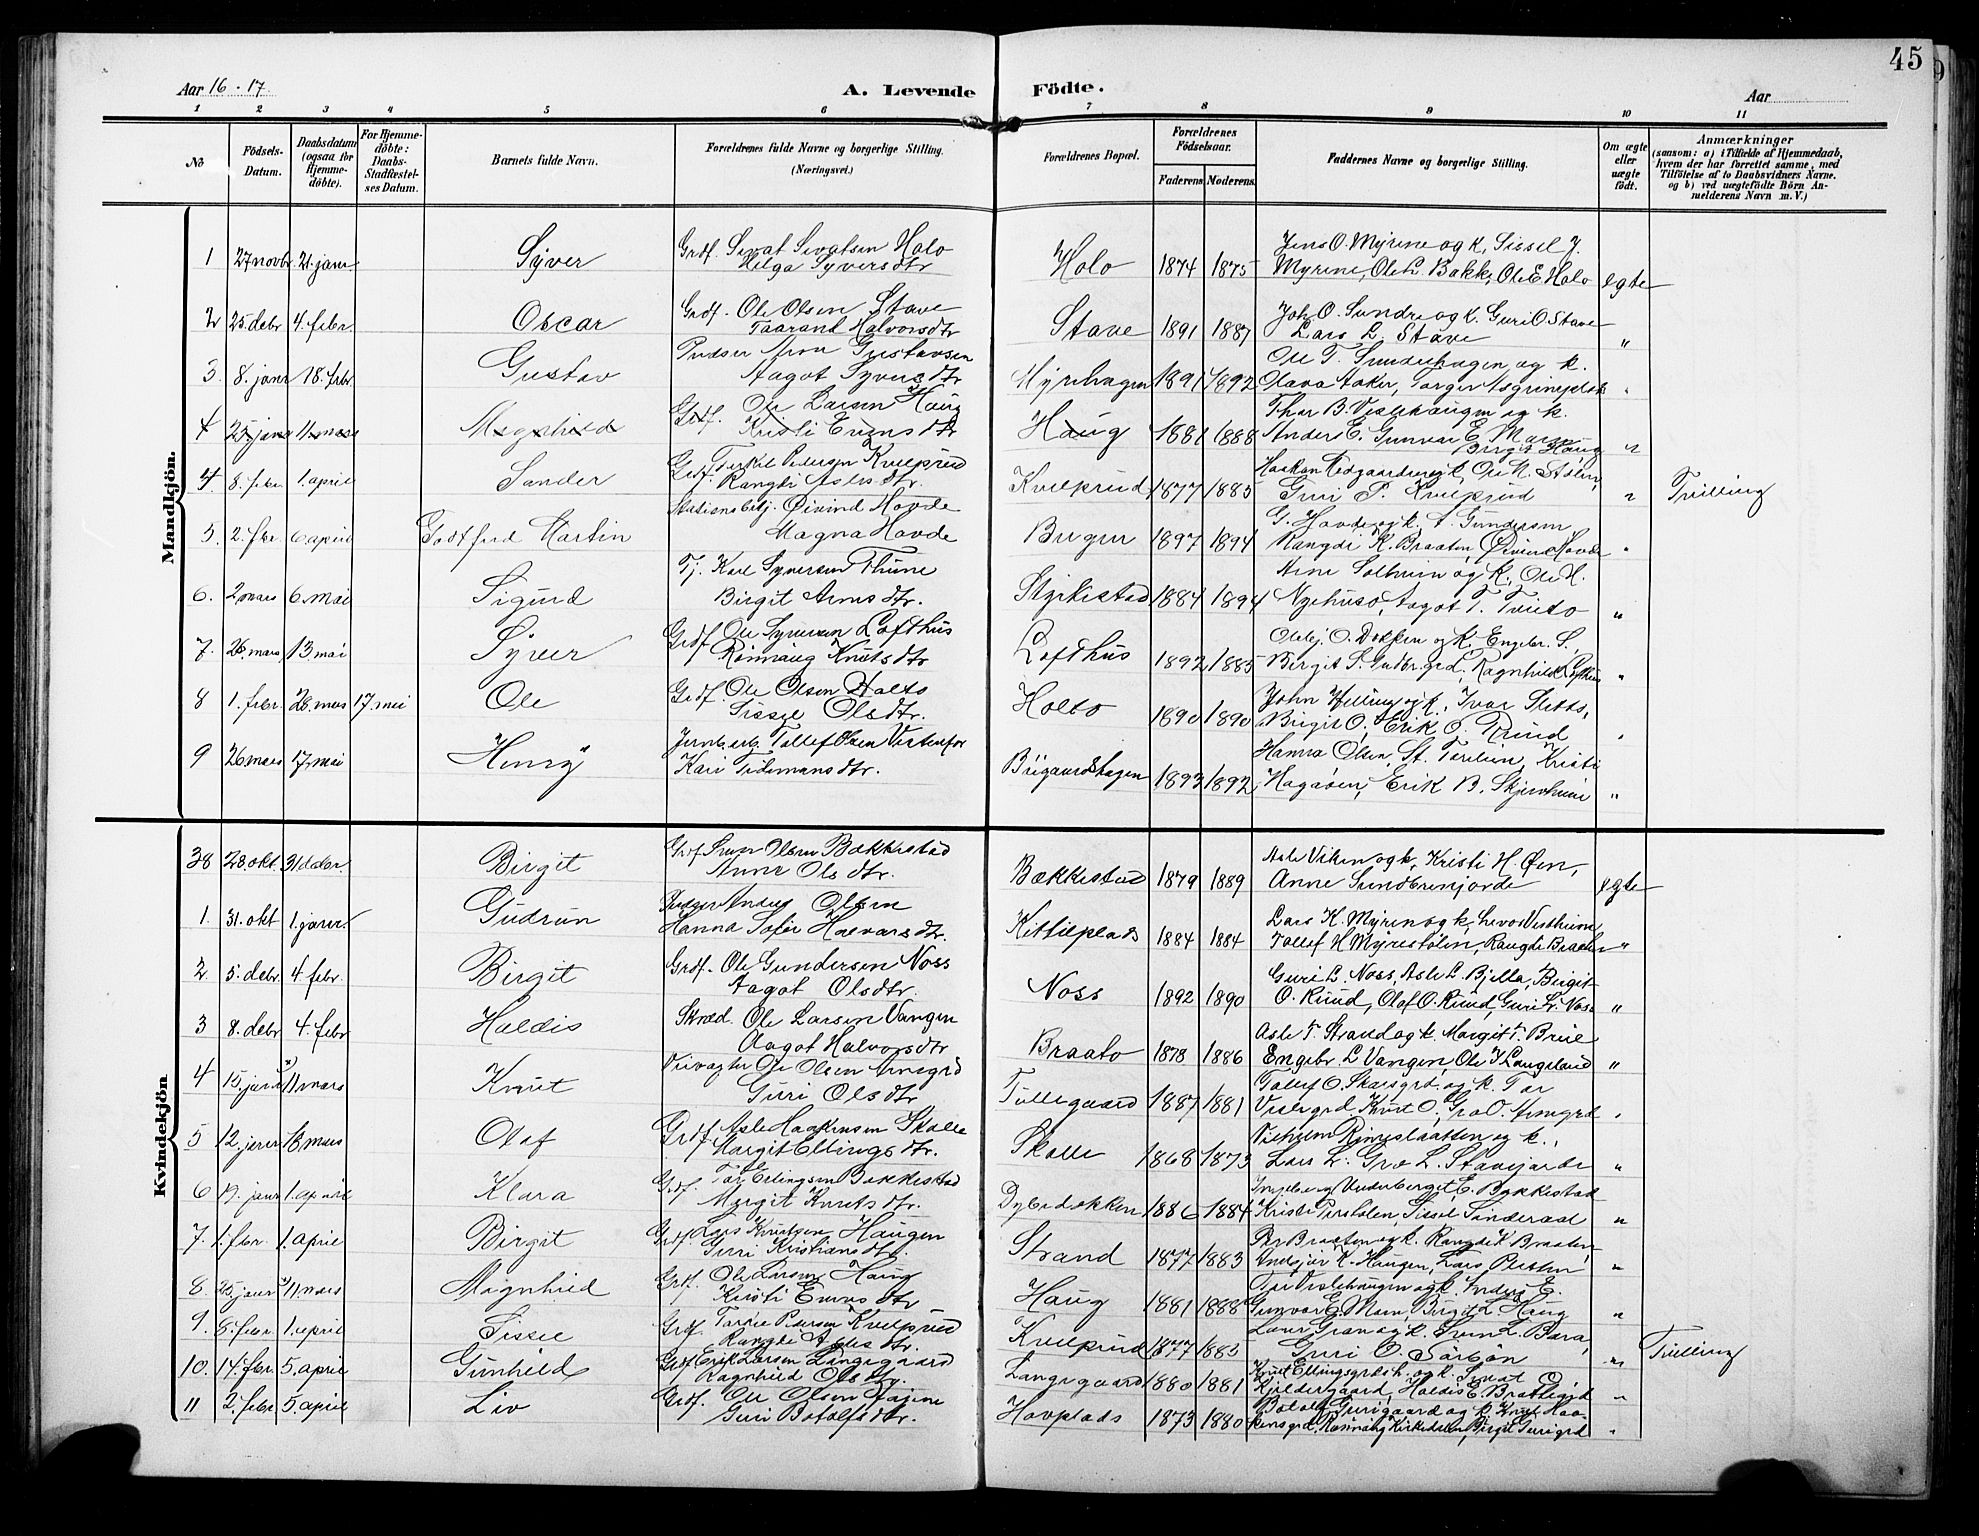 45
Aar 16 - 17.
A. Levende
Födte.
Aar
1 2 3 4 5 6 7 8 9 10 11
No
Födsels-
Datum.
Daabsdatum
(ogsaa for
Hjemme-
döbte).
For Hjemme-
döbte:
Daabs-
Stadfæstel-
ses Datum.
Barnets fulde Navn.
Forældrenes fulde Navne og borgerlige Stilling.
(Næringsvei.)
Forældrenes Bopæl.
Forældrenes
Födselsaar.
Faderens
Moderens.
Faddernes Navne og borgerlige Stilling.
Om ægte
eller
uægte
født.
Anmærkninger
(saasom: a) i Tilfælde af Hjemmedaab,
hvem der har forrettet samme, med
Tilföielse af to Daabsvidners Navne.
og b) ved uægtefödte Börn An-
melderens Navn m. V.)
Mandkjön.
1 27 novbr. 21. janr. Syver Grdf. Sevat Sevatsen Holo
Helga Syversdtr Holo 1874 1875
Jens O. Myrene og k, Sissel J.
Myrene, Ole L. Bakke, Ole E. Holo egte
2 25. debr 4. febr. Oscar Grdf. Ole Olsen Stave
Taarand Halvorsdtr Stave 1891 1887
Joh. O. Sundre og k. Guri O Stave
Lars L. Stave "
3. 8. janr 18. febr. Gustav Arne Gustavsen
Aagot Syversdtr Myrehagen 1891 1892
Ole T. Sundrehagen og k.
Olava Aaker, Torger "
4 25 janr 11 mars Magnhild Grdf. Ole Larsen Haug
Kristi Evensdtr Haug 1881 1888
Thor B. Veslehaugen og k.
Anders E. Gunvor E. Moen,
Birgit Haug "
4. 8. febr 1. april Sander Grdf Terkel Pedersen Kvelprud
Rangdi Aslesdtr. Kvelprud 1877 1885
Guri P. Kvelprud " Tvilling
5. 2. febr 6 april Godtfred Martin Stationsbetj. Øivind Hovde
Magna Hovde 1897 1894
G. Hovde og k. A. Gundersen
Rangdi K. Braaten, Øivind Hovde "
6. 2 mars 6. mai Sigurd Tj. Karl Syversen Thune
Birgit Arnesdtr. Styrkestad 1884 1894
Arne Solheim og K, Ole H.
Nyehuso, Aagot T. Tveito "
7. 26. mars 13. mai Syver Grdf Ole Syversen Lofthus
Rønnaug Knutsdtr Lofthus 1892 1885
O. Dokken og K, Engebr. S.,
Birgit S. Gudbr.grd., Ragnhild Lofthus "
8 1. febr. 26. mars 17. mai Ole Grdf. Ole Olsen Holto
Sissel Olsdtr. Holto 1890 1890
John Helling og k, Ivar Sletto,
Birgit O, Erik O. Ruud
9 26 mars 17. mai Henry Jernb.arb. Tollef Olsen
Kari Tidemansdtr. Bügaardshagen 1893 1892
Hanna Olsen, St. Kristi
Hagaasen, Erik B. Skjervheim "
Kvindekjön
38 28. okt. 31 debr. Birgit Grdf Svein Olsen Bækkestad
Anne Olsdtr. Bækkestad 1879 1889
Asle Viken og k, Kristi H. Øen,
Anne Sundbrenjorde egte
1. 31. okt 1. janr. Gudrun Anders Olsen
Hanna Sofie Halvorsdtr. Kittilplads 1884 1884
Lars K. Myren og k,
Tollef H Myrestølen, Rangdi Braaten "
2 5. debr 4 febr. Birgit Grdf. Ole Gundersen Noss
Aagot Olsdtr. Noss 1892 1890
Guri L. Noss, Asle L. Bjella, Birgit
O. Ruud, Olaf O. Ruud, Guri L. Noss "
3 8. debr 4. febr Haldis Skræd. Ole Larsen Vangen
Aagot Halvorsdtr Braato 1878 1886
Asle T Strand og k. Margit T. Brue
Engebr. L. Vangen, Ole K Langeland "
4 15. janr 11 mars Knut Veivogter Ole Olsen Arnegrd
Guri Olsdtr Tollegaard 1887 1881
Tollef O. Skarsgrd. og k. Tor
Veslegrd Knut O, Gro O. Arnegrd "
5 12. janr 18 mars Olaf Grdf Asle Haakensen Skolle
Margit Ellingsdtr. Skolle 1868 1873
Vilhelm og k.,
Lars L. Gro L. Stavejorde "
6 19. janr 1. april Klara Grdf. Tor Erlingsen Bækkestad
Margit Knutsdtr. Dybedokken 1886 1884
E. Bækkestad
Kristi Sissel Sinderaad "
7. 1. febr. 1. april Birgit Grdf. Lars Knutsen Haugen
Guri Kristiansdtr. Strand 1877 1883
Per Braaten og k. Rangdi K Braaten,
K. Haugen, Lars "
8. 25. janr 11. mars Magnhild Grdf. Ole Larsen Haug
Kristi Evensdtr Haug 1881 1888
Tor Veslehaugen og k. Anders E.
Gunvor E. Moen, Birgit L. Haug "
9. 8. febr. 1. april Sissel Grdf. Pedersen Kvelprud
Rangdi Aslesdtr Kvelprud 1877 1885
og k. Svein L. Bæra,
Guri O. Sørbøn " Tvilling
10. 14. febr. 5. april Gunhild Grdf Erik Larsen Langegaard
Ragnhild Olsdtr. Langegaard 1880 1881
Knut Ellingsgrdsh. og k. Sevat O
Kjeldergaard, Haldis E. "
11 2. febr 5. april Liv Grdf. Ole Olsen
Guri Botolfsdtr. Hovplads 1873 1880
Botolf Gurigaard og k. Knut Haa-
kensgrd, Rønnaug Kirkedelen, Birgit Gurigrd "